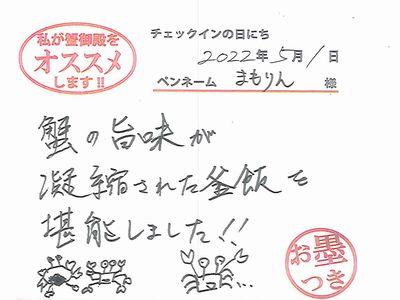 私が蟹御殿を
オススメ
します!!
チェックインの日にち
2022年5月1日
ペンネーム まもりん 様
蟹の旨味が
凝縮された釜飯を
堪能しました!!
お墨
つき